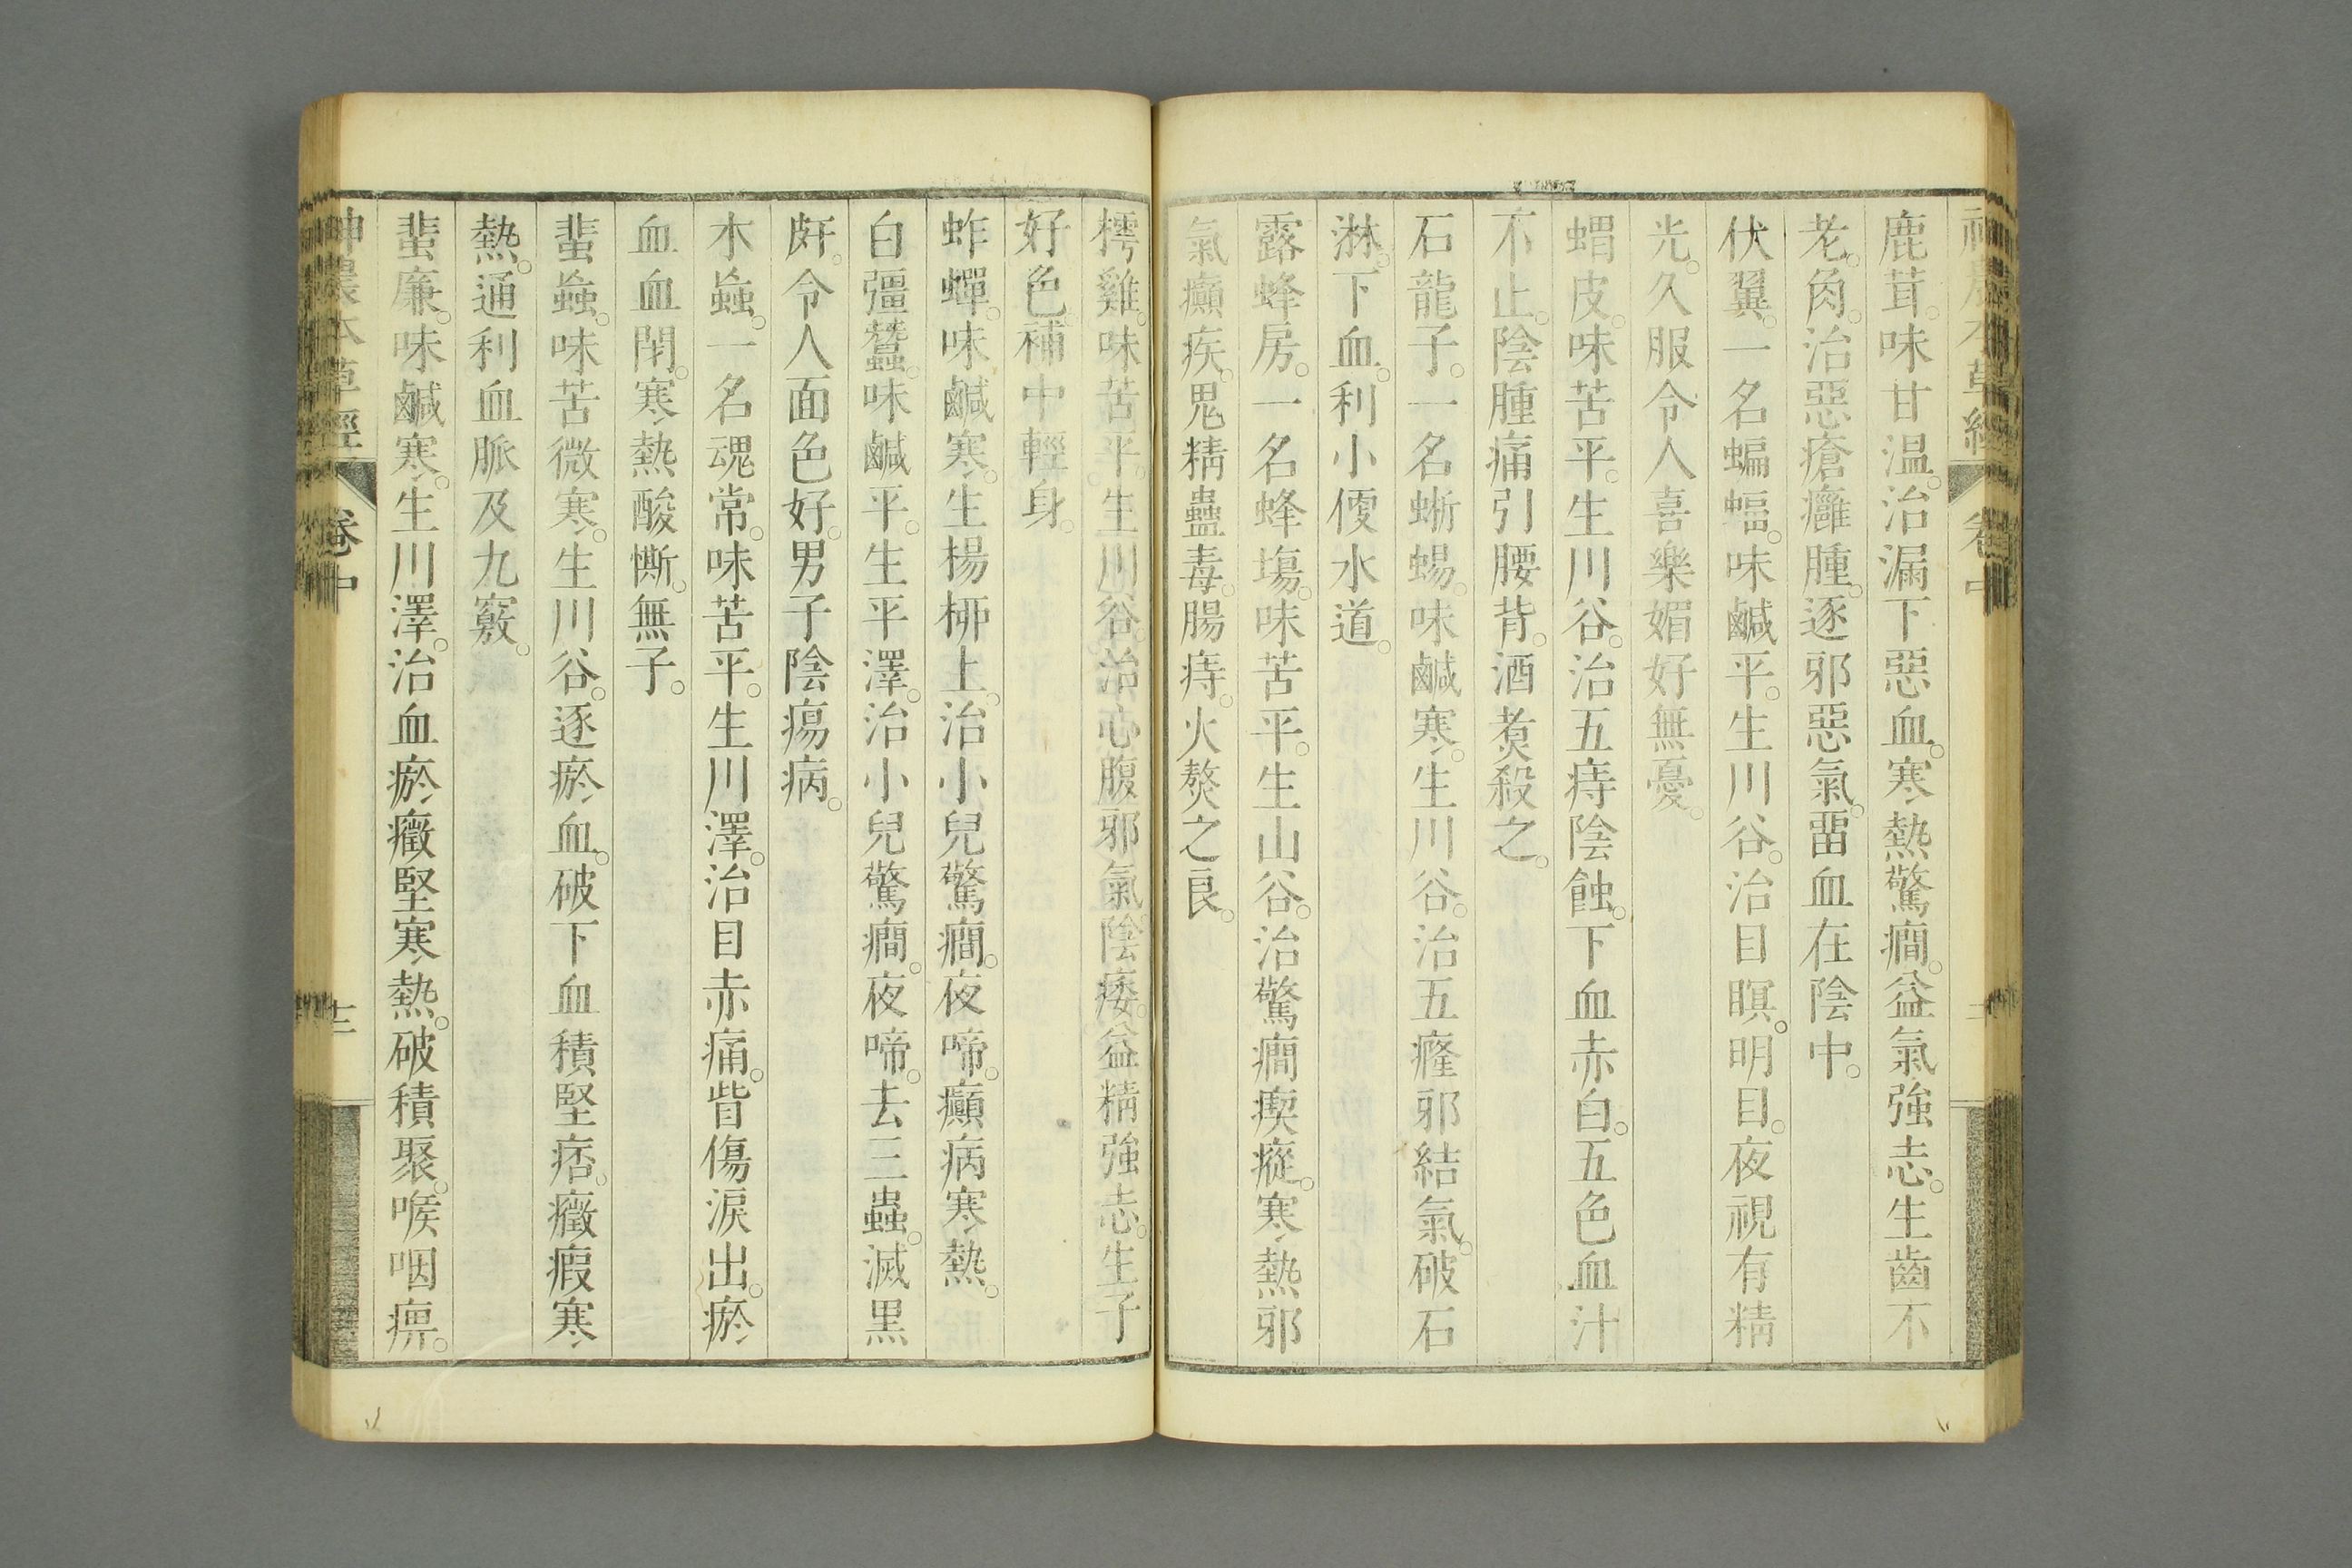 鹿茸。味甘温。治漏下惡血。寒熱驚癇。益氣強志。生齒不
老。角。治惡瘡癰腫。逐邪惡氣。畱血在陰中。
伏翼。一名蝙蝠。味鹹平。生川谷。治目瞑。明目。夜視有精
光。久服令人喜樂媚好無憂。
蝟皮。味苦平。生川谷。治五痔陰蝕。下血赤白。五色血汁
不止。陰腫痛引腰背。酒煑殺之。
石龍子。一名蜥蜴。味鹹寒。生川谷。治五癃邪結氣。破石
淋。下血。利小便水道。
露蜂房。一名蜂場。味苦平。生山谷。治驚癇瘈瘲。寒熱邪
氣癲疾。鬼精蠱毒。腸痔。火熬之良。
樗雞。味苦平。生川谷。治心腹邪氣。陰痿。益精強志。生子
好色。補中輕身。
蚱蟬。味鹹寒。生楊柳上。治小兒驚癇。夜啼。癲病寒熱。
白彊蠶。味鹹平。生平澤。治小兒驚癇。夜啼。去三蟲。滅黑
皯。令人面色好。男子陰瘍病。
木䖟。一名魂常。味苦平。生川澤。治目赤痛。眥傷淚出。瘀
血血閉。寒熱酸㾷。無子。
蜚䖟。味苦微寒。生川谷。逐瘀血。破下血積堅痞。癥瘕寒
熱。通利血脈及九竅。
蜚廉。味鹹寒。生川澤。治血瘀癥堅寒熱。破積聚。喉咽痹。
神農本草經 卷中 十二